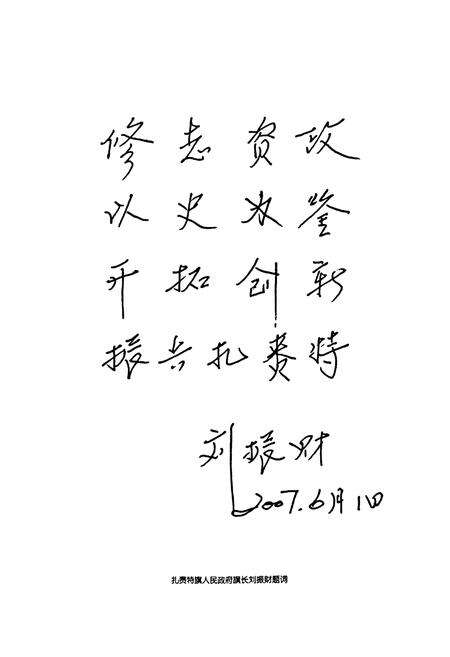 修志资政
以史为鉴
开拓创新
振兴扎赉特
刘振财
2007.6月1日
扎赉特旗人民政府旗长刘振财题词